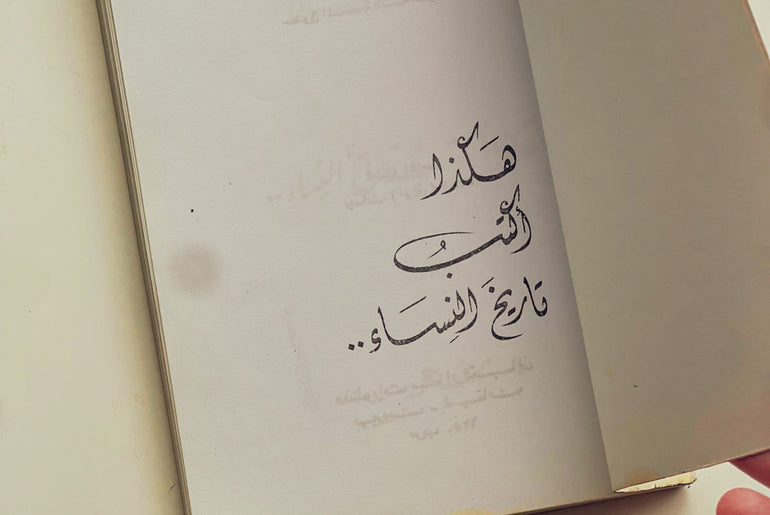 هَكَذا
أكتبُ
تاريخَ النِسَاء..